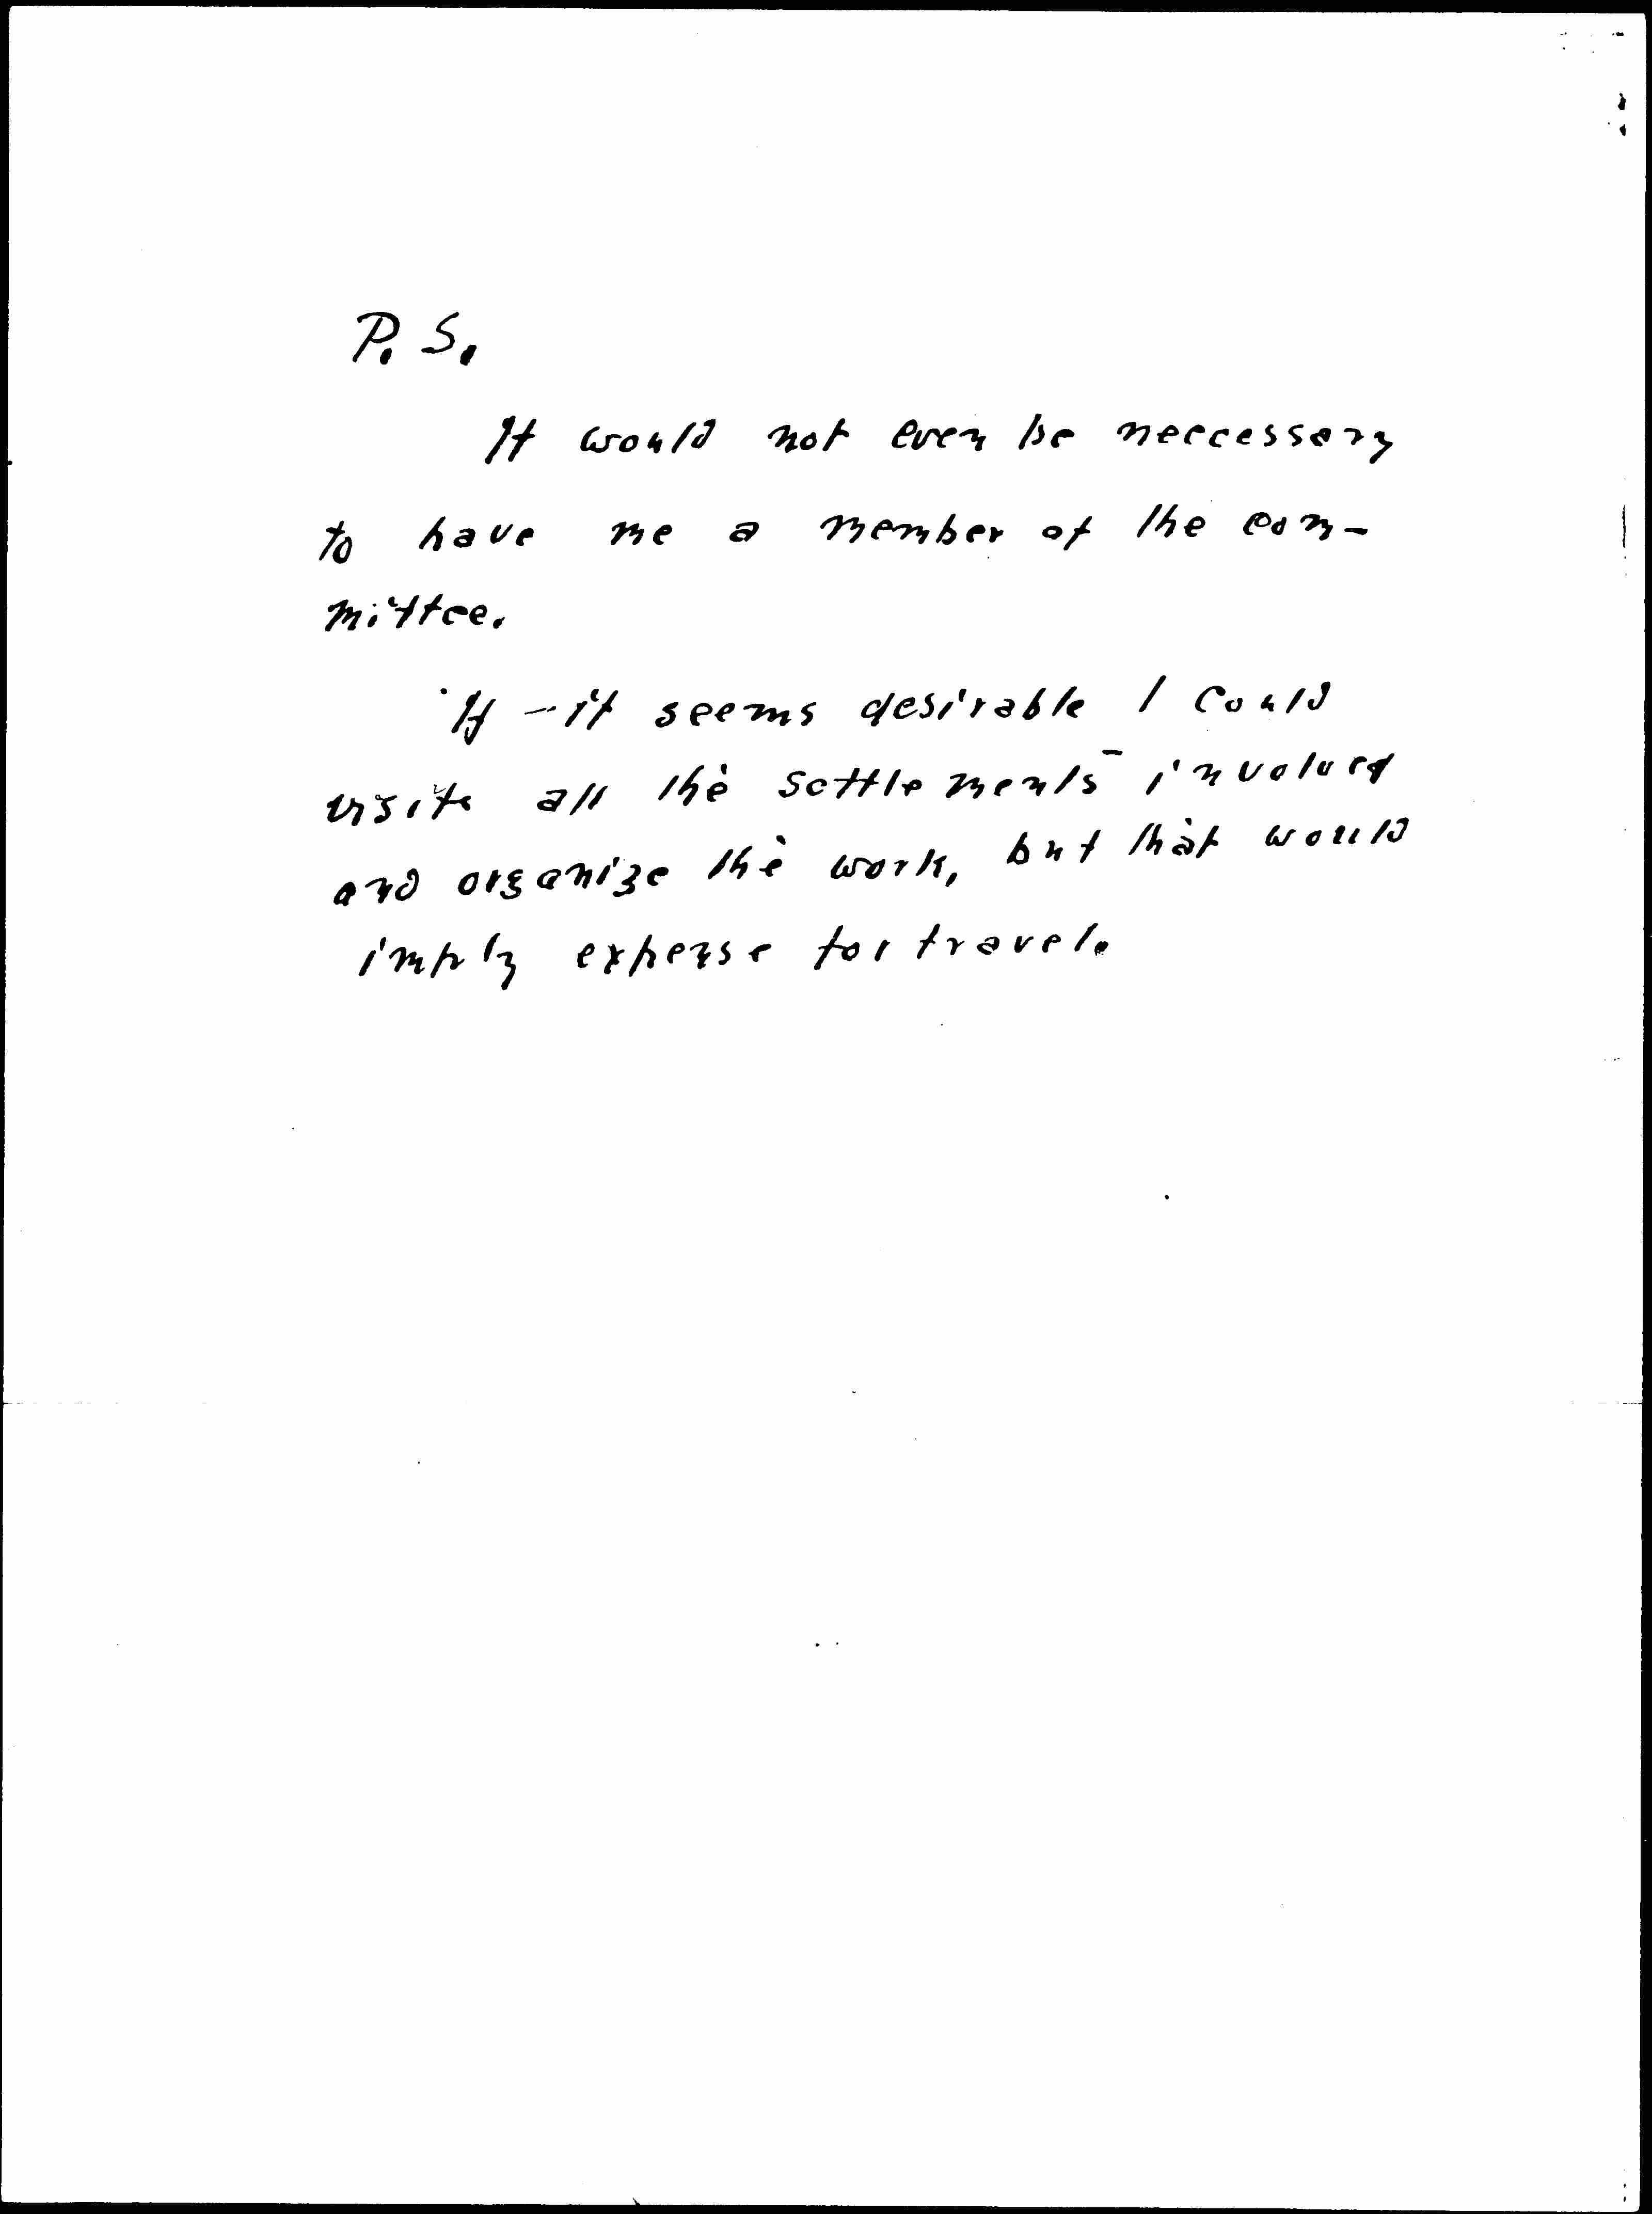 P. S.
It would not even be neccessary
to have me a member of the com-
mittee.
If - it seems desirable I could
visite all the settlements involved
and organize the work, but that would
imply expense for travel.